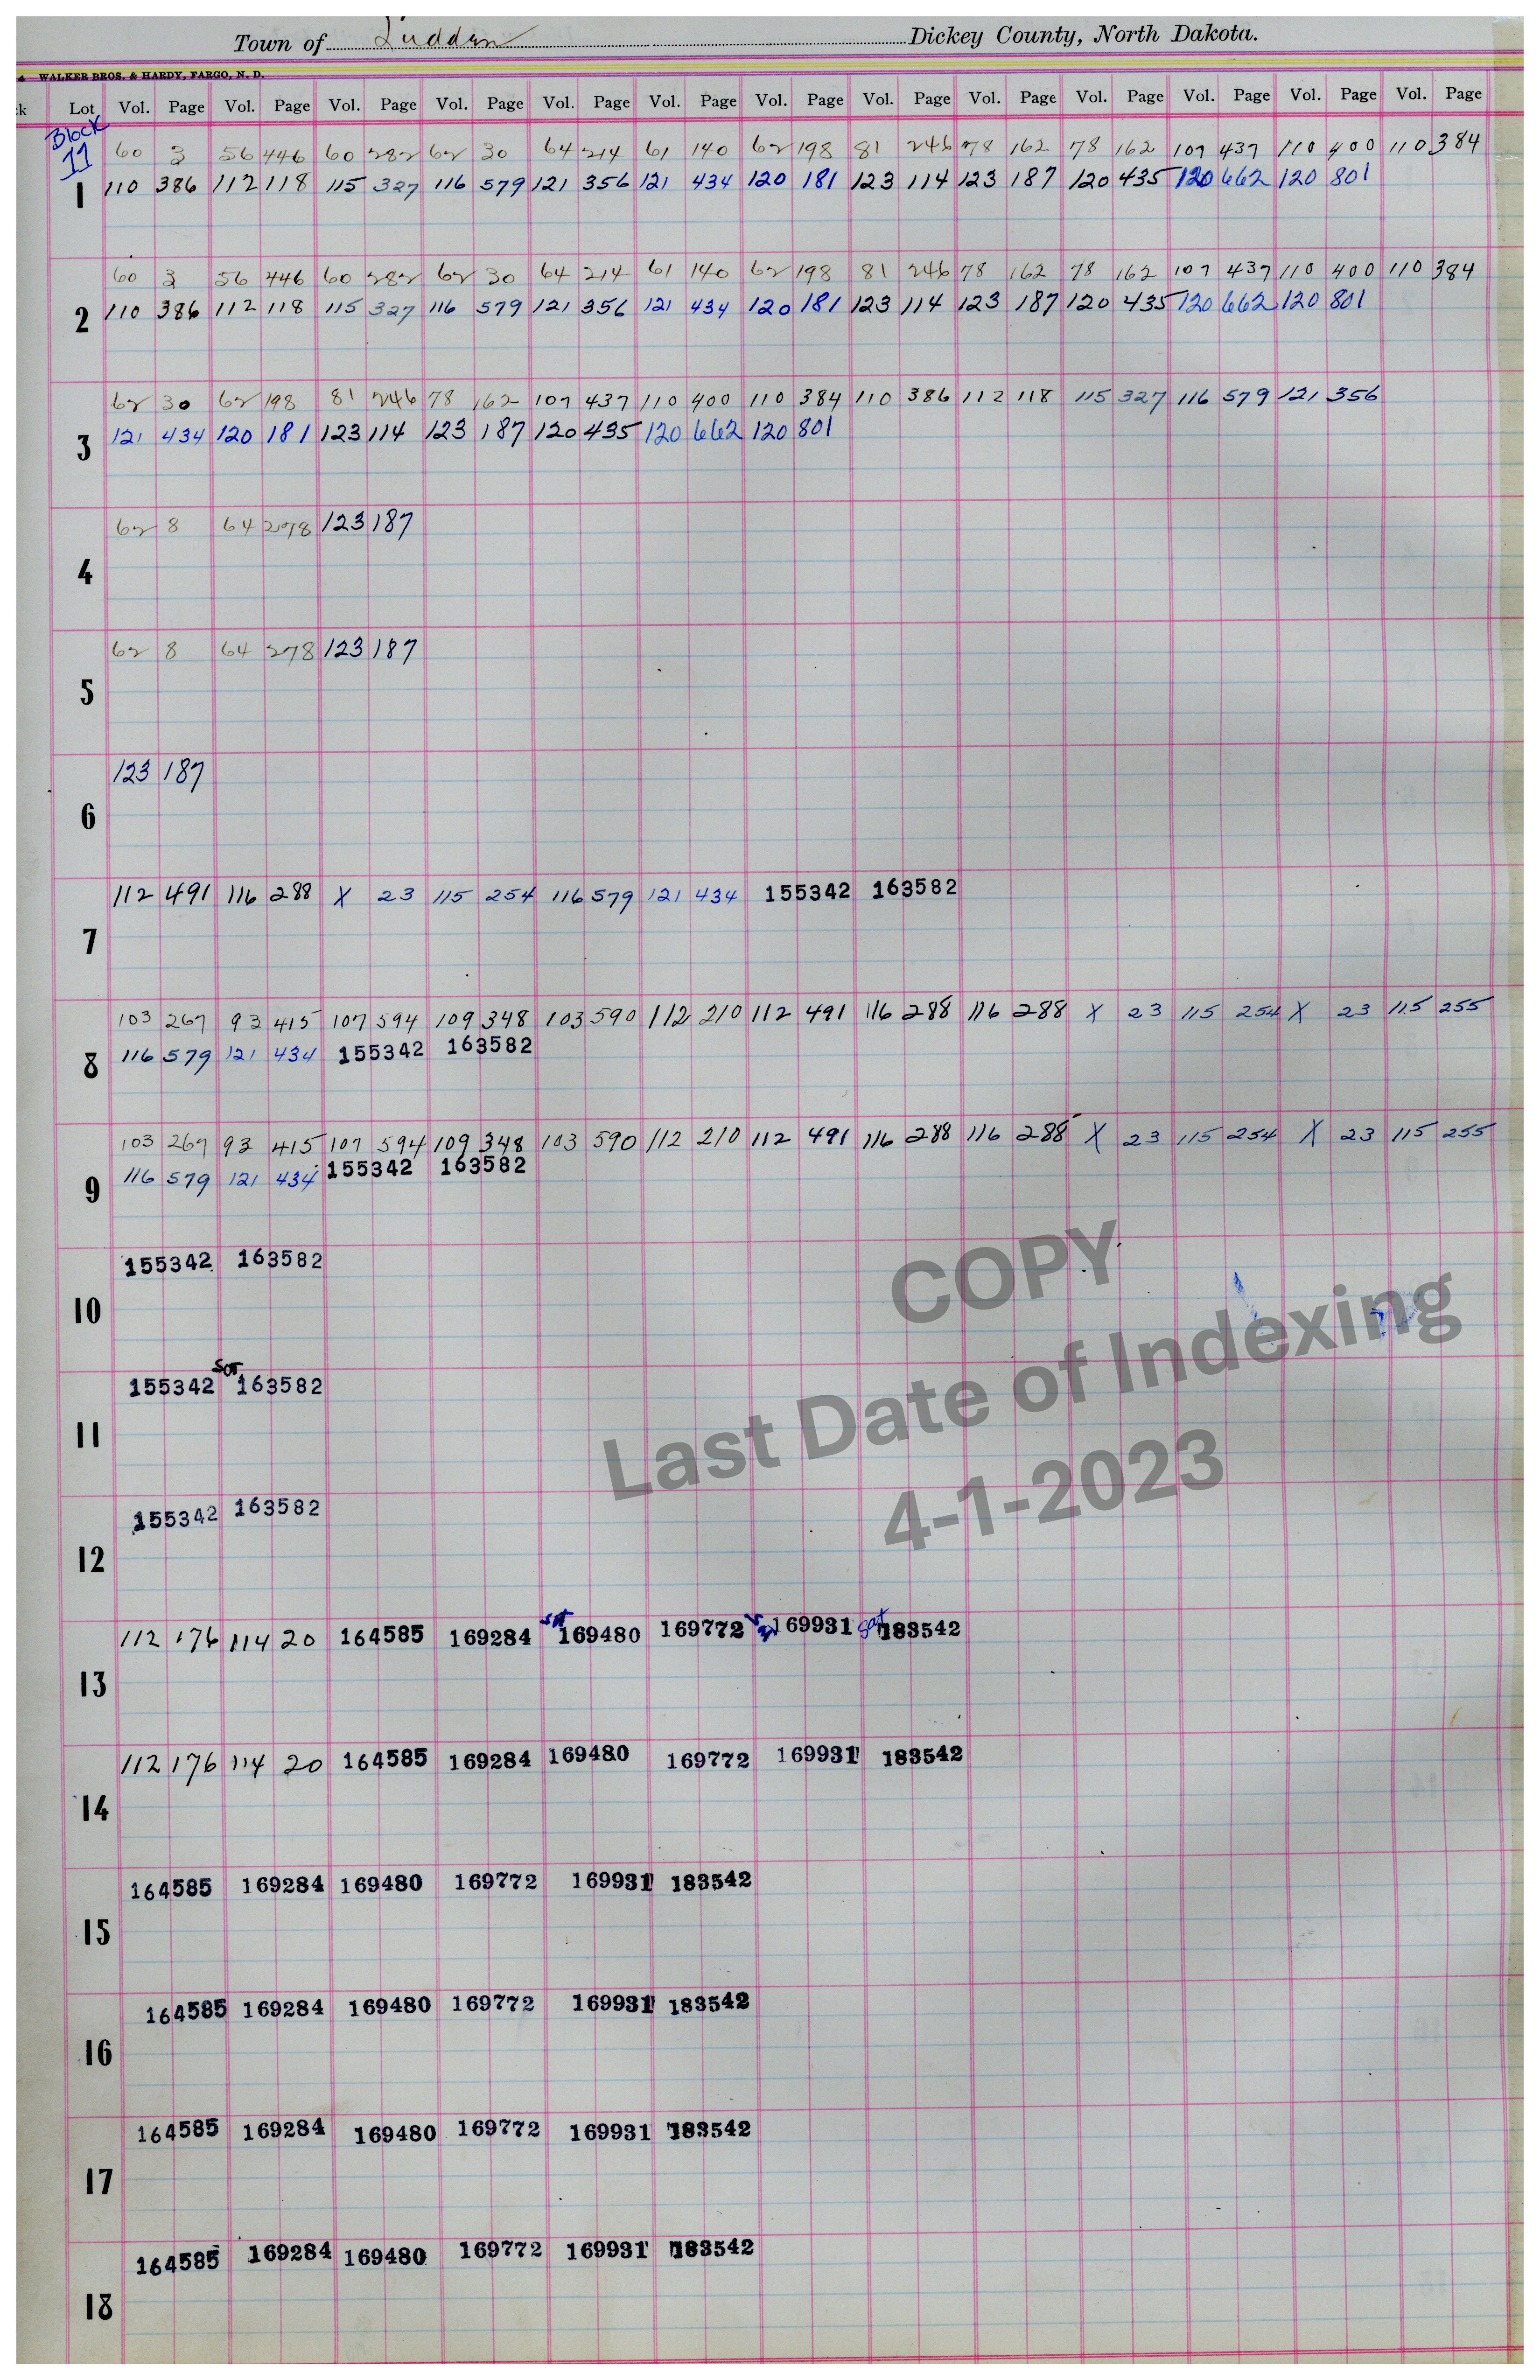 Town of Ludden Dickey County, North Dakota.
WALKER BROS. & HARDY, FARGO, N. D.
k Lot Vol. Page Vol. Page Vol. Page Vol. Page Vol. Page Vol. Page Vol. Page Vol. Page Vol. Page Vol. Page Vol. Page Vol. Page Vol. Page
Block
11
60 3 56 446 60 282 62 30 64 214 61 140 62 198 81 246 78 162 78 162 107 437 110 400 110 384
1 110 386 112 118 115 327 116 579 121 356 121 434 120 181 123 114 123 187 120 435 120 662 120 801
60 3 56 446 60 282 62 30 64 214 61 140 62 198 81 246 78 162 78 162 107 437 110 400 110 384
2 110 386 112 118 115 327 116 579 121 356 121 434 120 181 123 114 123 187 120 435 120 662 120 801
62 30 62 198 81 246 78 162 107 437 110 400 110 384 110 386 112 118 115 327 116 579 121 356
3 121 434 120 181 123 114 123 187 120 435 120 662 120 801
62 8 64 278 123 187
4
62 8 64 278 123 187
5
123 187
6
112 491 116 288 X 23 115 254 116 579 121 434 155342 163582
7
103 267 93 415 107 594 109 348 103 590 112 210 112 491 116 288 116 288 X 23 115 254 X 23 115 255
116 579 121 434 155342 163582
8
103 267 93 415 107 594 109 348 103 590 112 210 112 491 116 288 116 288 X 23 115 254 X 23 115 255
116 579 121 434 155342 163582
9
155342 163582
10
COPY
Last Date of Indexing
4-1-2023
155342 163582
11
155342 163582
12
112 176 114 20 164585 169284 169480 169772 169931 183542
13
112 176 114 20 164585 169284 169480 169772 169931 183542
14
164585 169284 169480 169772 169931 183542
15
164585 169284 169480 169772 169931 183542
16
164585 169284 169480 169772 169931 183542
17
164585 169284 169480 169772 169931 183542
18